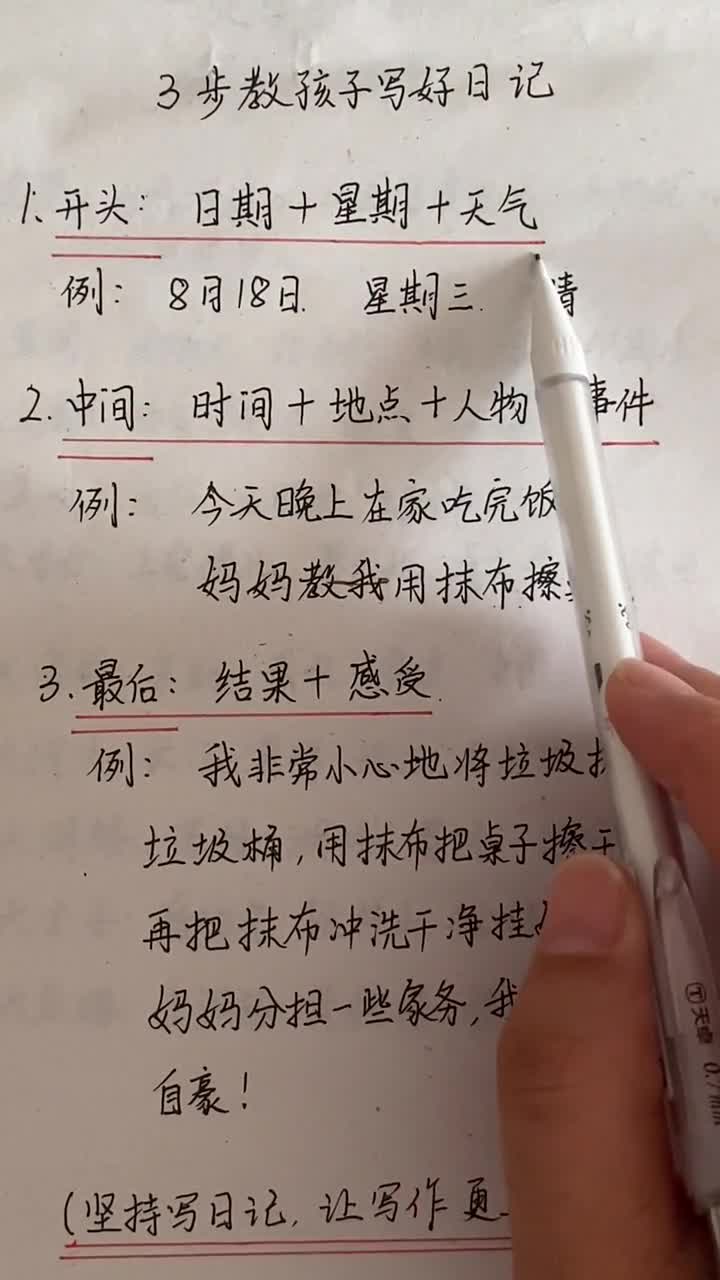 3步教孩子写好日记
1、开头：日期＋星期＋天气
例：8月18日. 星期三. 晴
2.中间：时间＋地点＋人物 事件
例：今天晚上在家吃完饭
妈妈教我用抹布擦
3.最后：结果＋感受
例：我非常小心地将垃圾
垃圾桶，用抹布把桌子擦干
再把抹布冲洗干净挂
妈妈分担一些家务，我
自豪！
(坚持写日记，让写作更
天卓
0.7mm